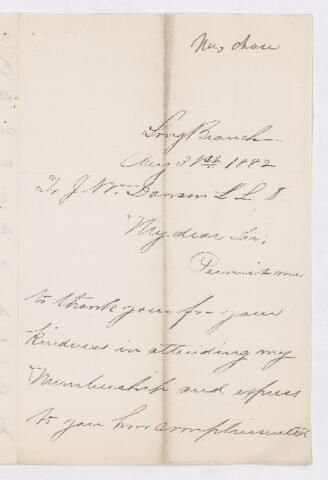 Long Branch
Aug 31st 1882
To J. Wm Dawson L L. D.
My dear Sir;
Permit me
to thank you for your
kindness in attending my
Membership and express
to you how complimented